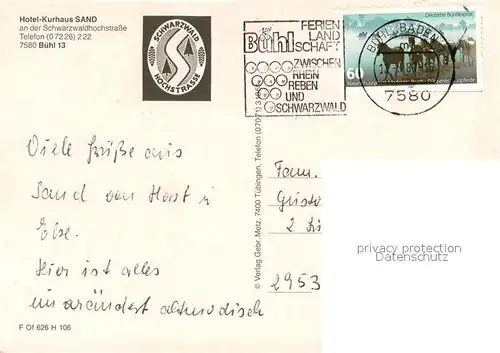 Hotel-Kurhaus SAND
an der Schwarzwaldhochstraße
Telefon (0 72 26) 2 22
7580 Bühl 13
SCHWARZWALD
HOCHSTRASSE
Bühl
FERIEN
LAND
SCHAFT
ZWISCHEN
RHEIN
REBEN
UND
SCHWARZWALD
BÜHL, BADEN
7580
Deutsche Bundespost
60
© Verlag Gebr. Metz, 7400 Tübingen, Telefon (07071)
Viele Grüße aus
Sand von Horst u
Else.
Hier ist alles
unverändert altmodisch
Fam.
2953
privacy protection
Datenschutz
F Of 626 H 106